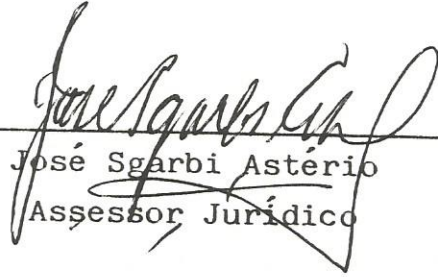 José Sgarbi Astério
Assessor Jurídico